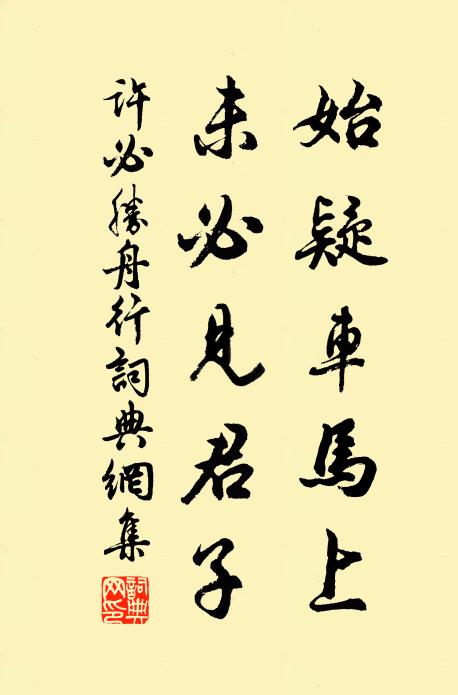 始疑車馬上
未必見君子
許必勝舟行詞典網集
詞典網印